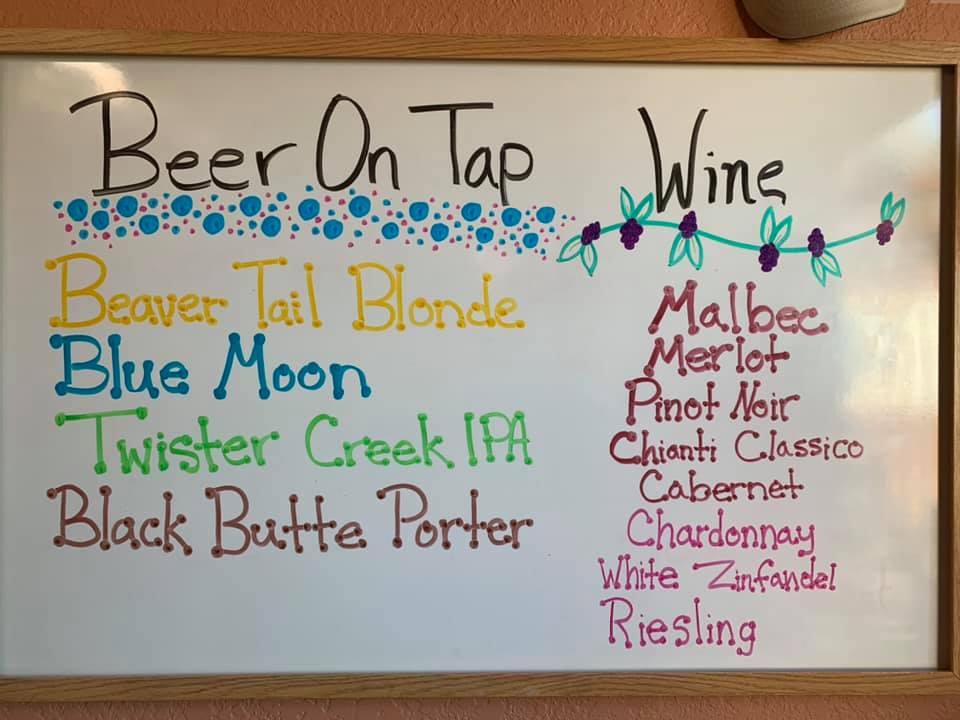 Beer On Tap
Beaver Tail Blonde
Blue Moon
Twister Creek IPA
Black Butte Porter
Wine
Malbec
Merlot
Pinot Noir
Chianti Classico
Cabernet
Chardonnay
White Zinfandel
Riesling